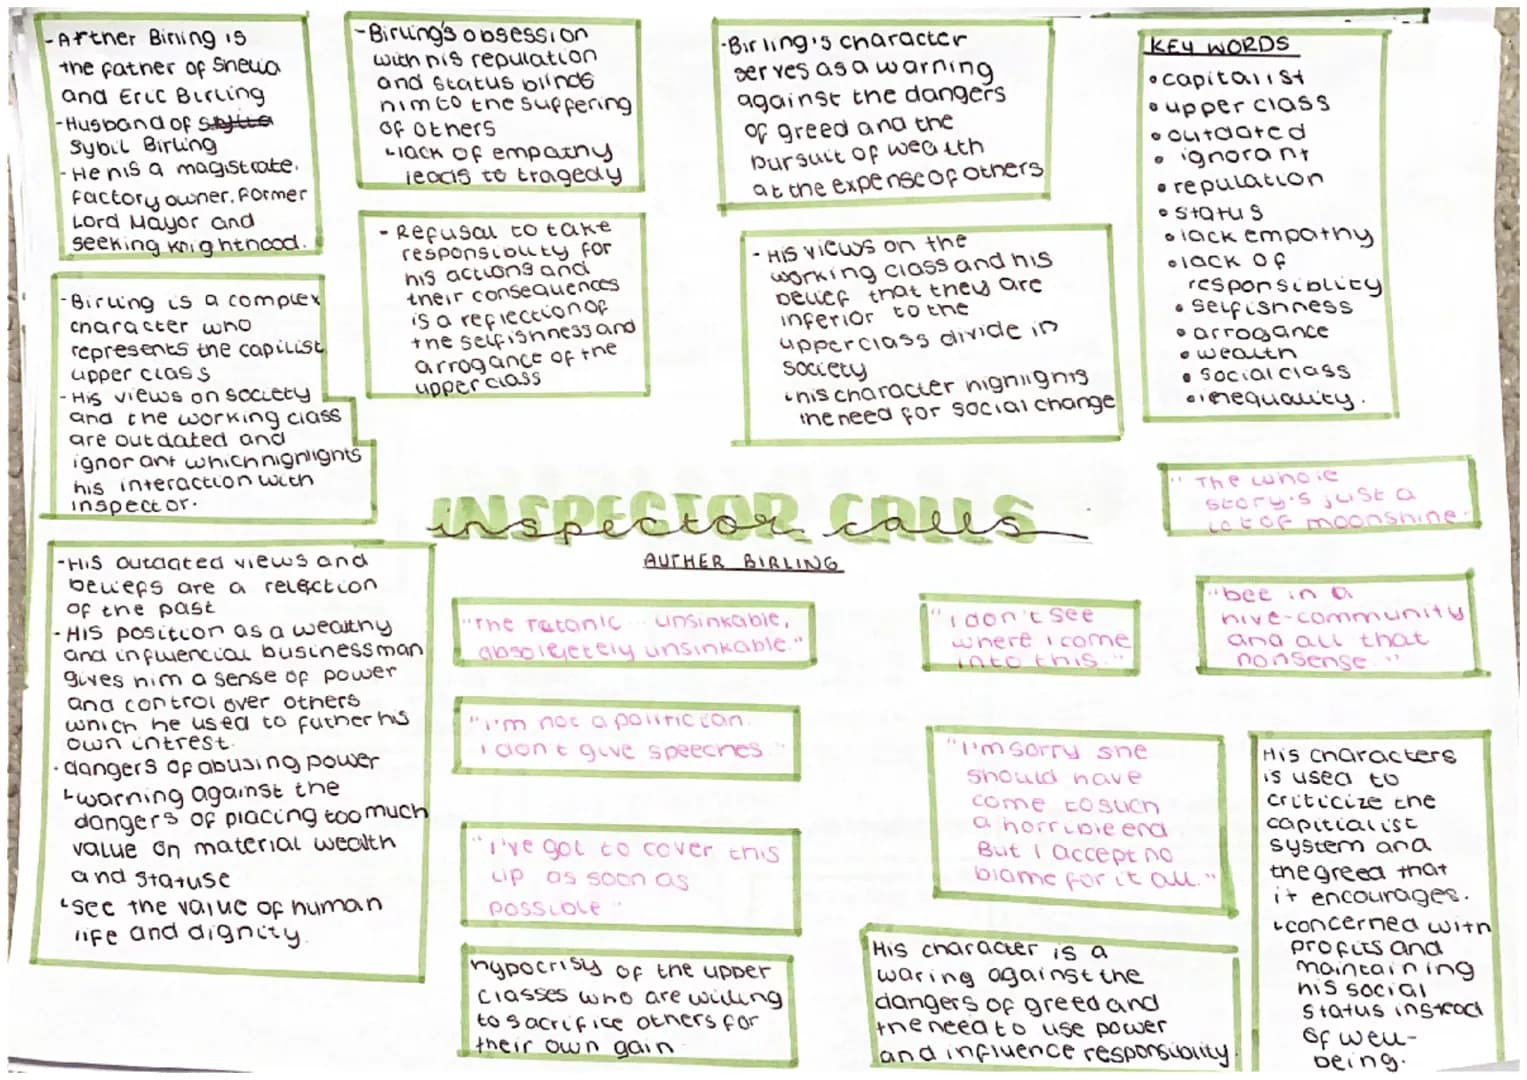 -Arther Birling is
the father of Sheila
and Eric Birling
-Husband of
Sybil Birling
-He his a magistrate,
factory owner, former
Lord Mayor and
seeking knighthood.
-Birling's obsession
with his reputation
and status blinds
him to the suffering
of others
↳lack of empathy
leads to tragedy
-Birling's character
serves as a warning
against the dangers
of greed and the
pursuit of wealth
at the expense of others
KEY WORDS
•capitalist
•upper class
•outdated
•ignorant
•reputation
•status
•lack empathy
•lack of
responsiblity
•selfishness
•arrogance
•wealth
•social class
•inequality.
-Birling is a complex
character who
represents the capilist
upper class
-His views on society
and the working class
are outdated and
ignorant which highlights
his interaction with
inspector.
-Refusal to take
responsiblity for
his actions and
their consequences
is a reflection of
the selfishness and
arrogance of the
upper class
-His views on the
working class and his
belief that they are
inferior to the
upperclass divide in
society
↳his character highlights
the need for social change
"The whole
story's just a
lot of moonshine.
INSPECTOR CALLS
inspector calls
AUTHER BIRLING
-His outdated views and
beliefs are a relection
of the past
-His position as a wealthy
and influencial businessman
gives him a sense of power
and control over others
which he used to futher his
own intrest.
-dangers of abusing power
↳warning against the
dangers of placing too much
value on material wealth
and statuse
↳see the value of human
life and dignity.
"The Tatanic... unsinkable,
absoleletely unsinkable."
"I'm not a politician.
I don't give speeches."
"I've got to cover this
up as soon as
possible."
hypocrisy of the upper
classes who are willing
to sacrifice others for
their own gain
"I don't see
where i come
into this."
"bee in a
hive-community
and all that
nonsense."
"I'm sorry she
should have
come to such
a horrible end
But I accept no
blame for it all."
His character is a
waring against the
dangers of greed and
the need to use power
and influence responsiblity.
His characters
is used to
criticize the
capitialist
system and
the greed that
it encourages.
↳concerned with
profits and
maintaining
his social
status instead
of well-
being.